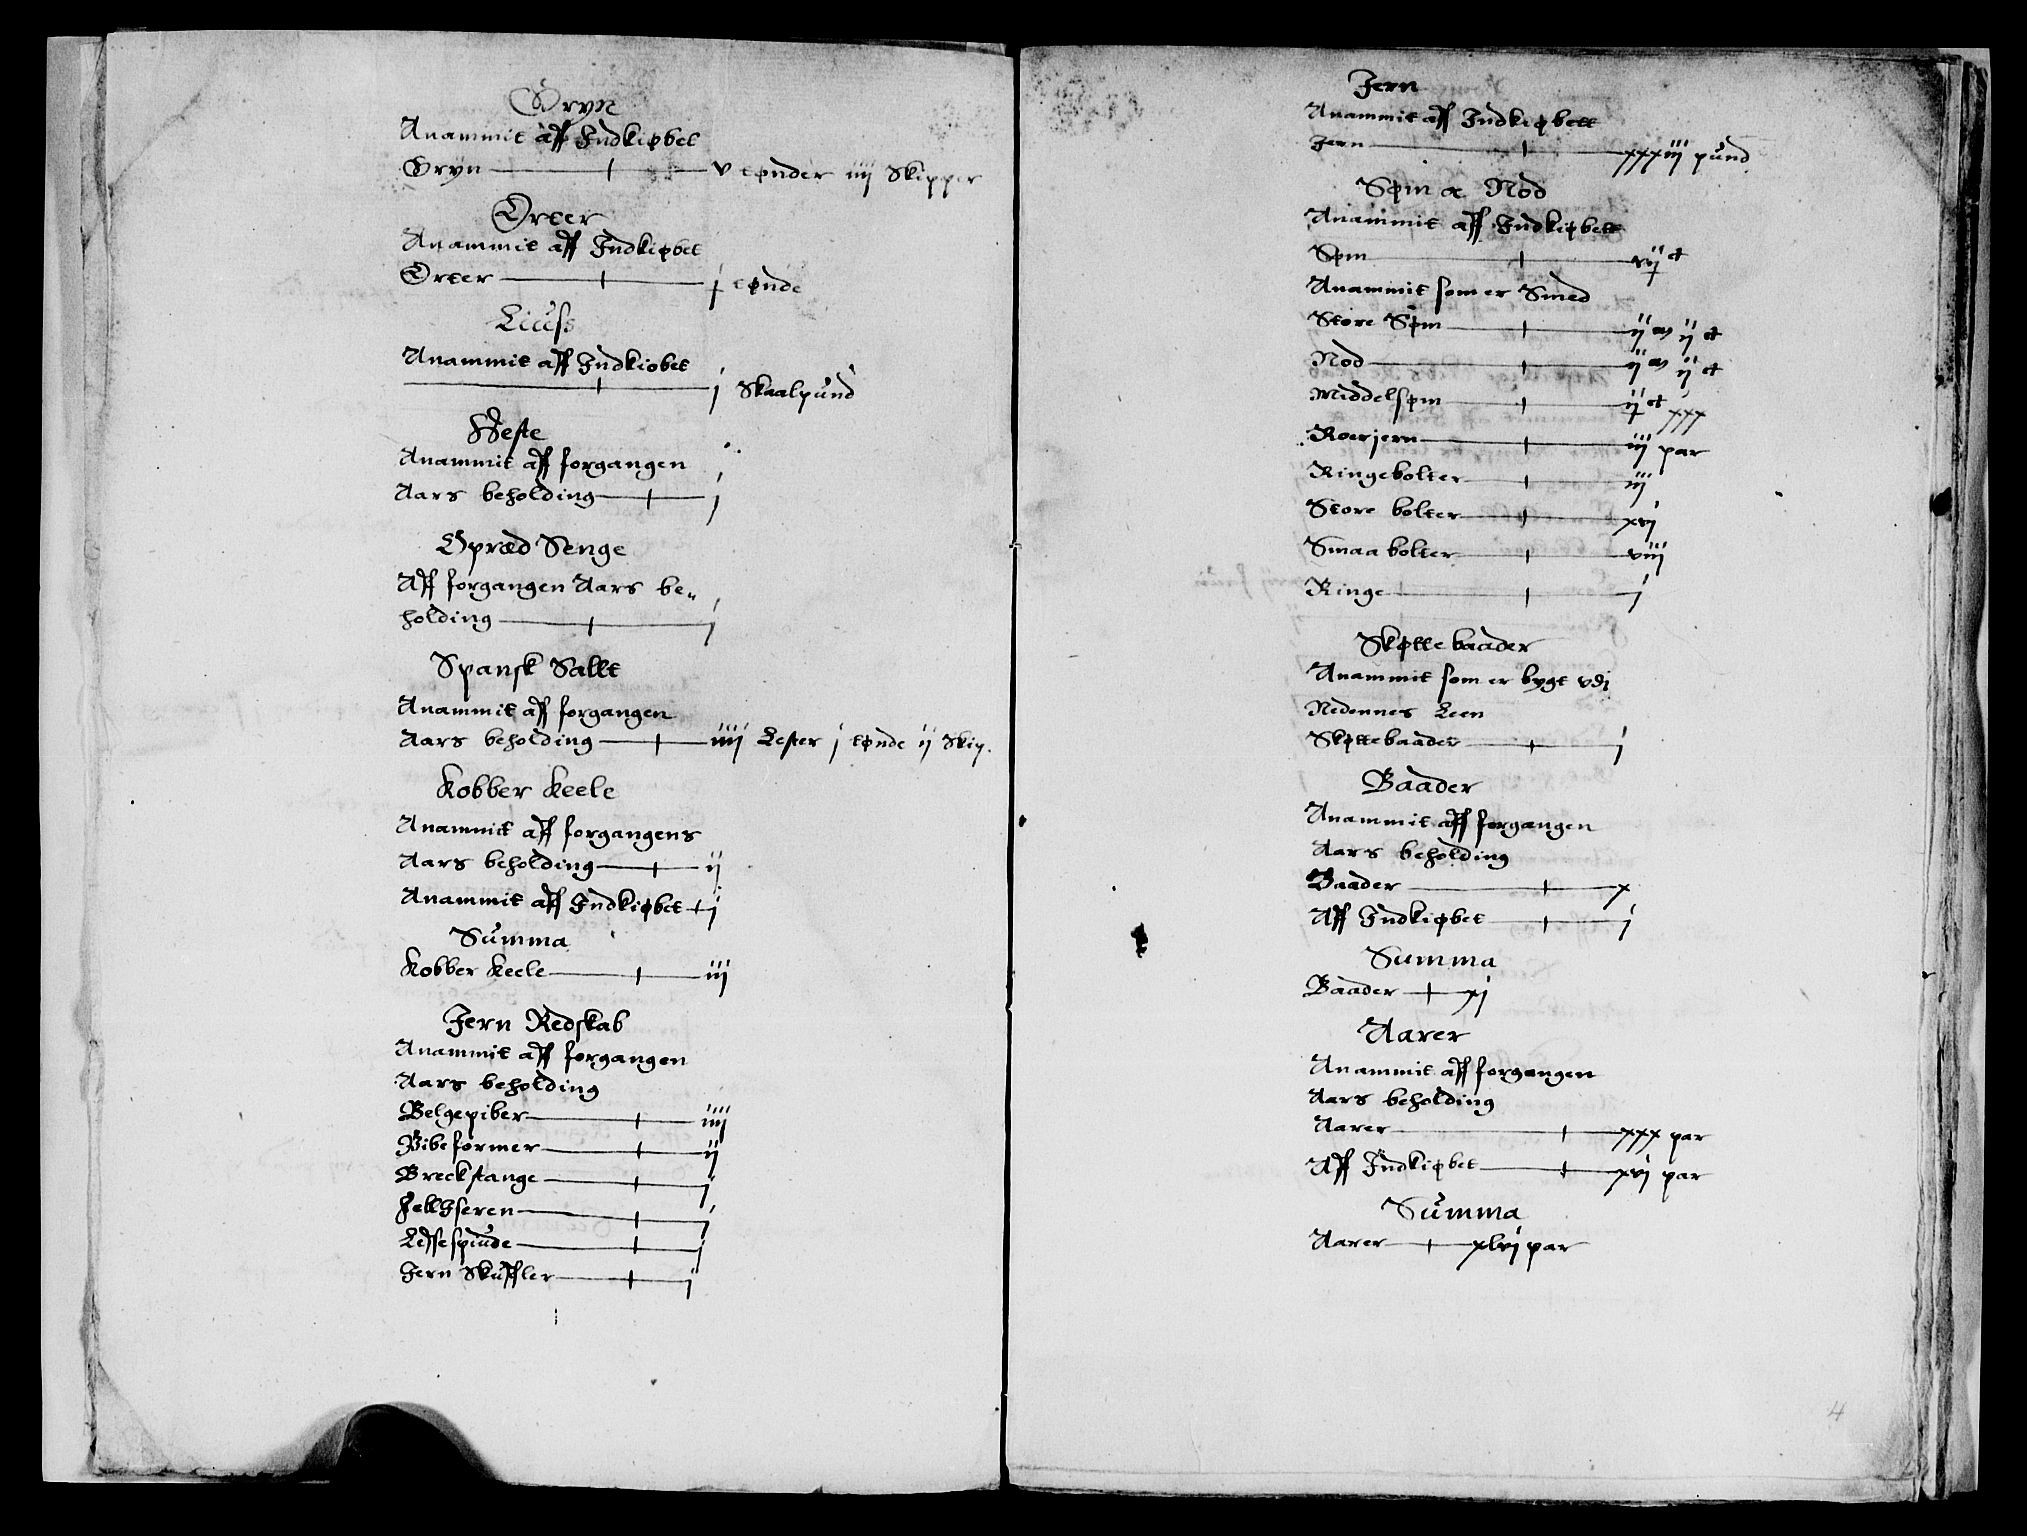 Gryn
Anammit aff Indkiøbet
Gryn — v tønder iiij Skipper
Erter
Anammit aff Indkiøbet
Erter — j tønde
Liuss
Anammit aff Indkiobet
— j Skaalpund
Heste
Anammit aff forgangen
Aars beholding — j
Opræd Senge
Aff forgangen Aars be„
holding — j
Spansk Salltt
Anammit aff forgangen
Aars beholding — iiiij Lester j tønde ij Skip.
Kobber Keele
Anammit aff forgangens
Aars beholding — ij
Anammit aff Indkiøbet — j
Summa
Kobber Keele — iij
Jern Redskab
Anammit aff forgangen
Aars beholding
Belgepiber — iiij
Vibeformer — ij
Breckstange — j
— j
— j
Jern Skuffler — j
Jern
Anammit aff Indkiøbett
Jern — xxxiij pund
Søm oc Nod
Anammit aff Indkiøbett
Søm — ct
Anammit som er Smed
Store Søm — ij m ij ct
Nod — ij m ij ct
Middelsøm — ij ct xxx
Roerjern — iij par
Ringebolter — iij
Store bolter — xvj
Smaa bolter — viij
Ringe — j
Skøttebaader
Anammit som er bygt vdj
Nedennes Leen
Skøttebaader — j
Baader
Anammit aff forgangen
Aars beholding
Baader — x
Aff Indkiøbet — j
Summa
Baader — xj
Aarer
Anammit aff forgangen
Aars beholding
Aarer — xxx par
Aff Indkiøbet — xvj par
Summa
Aarer — xlvj par
4